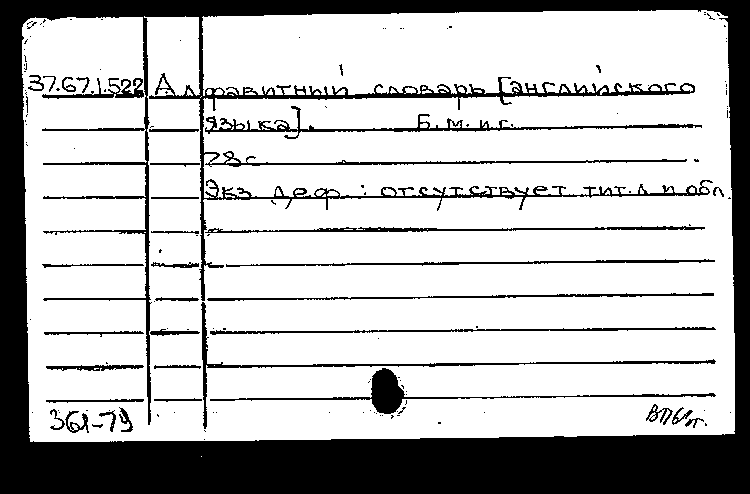 37.67.1.522 Алфавитный словарь [английского
языка]. Б.м.и.г.
78 с.
Экз. деф.: отсутствует тит. л. и обл.
361-79